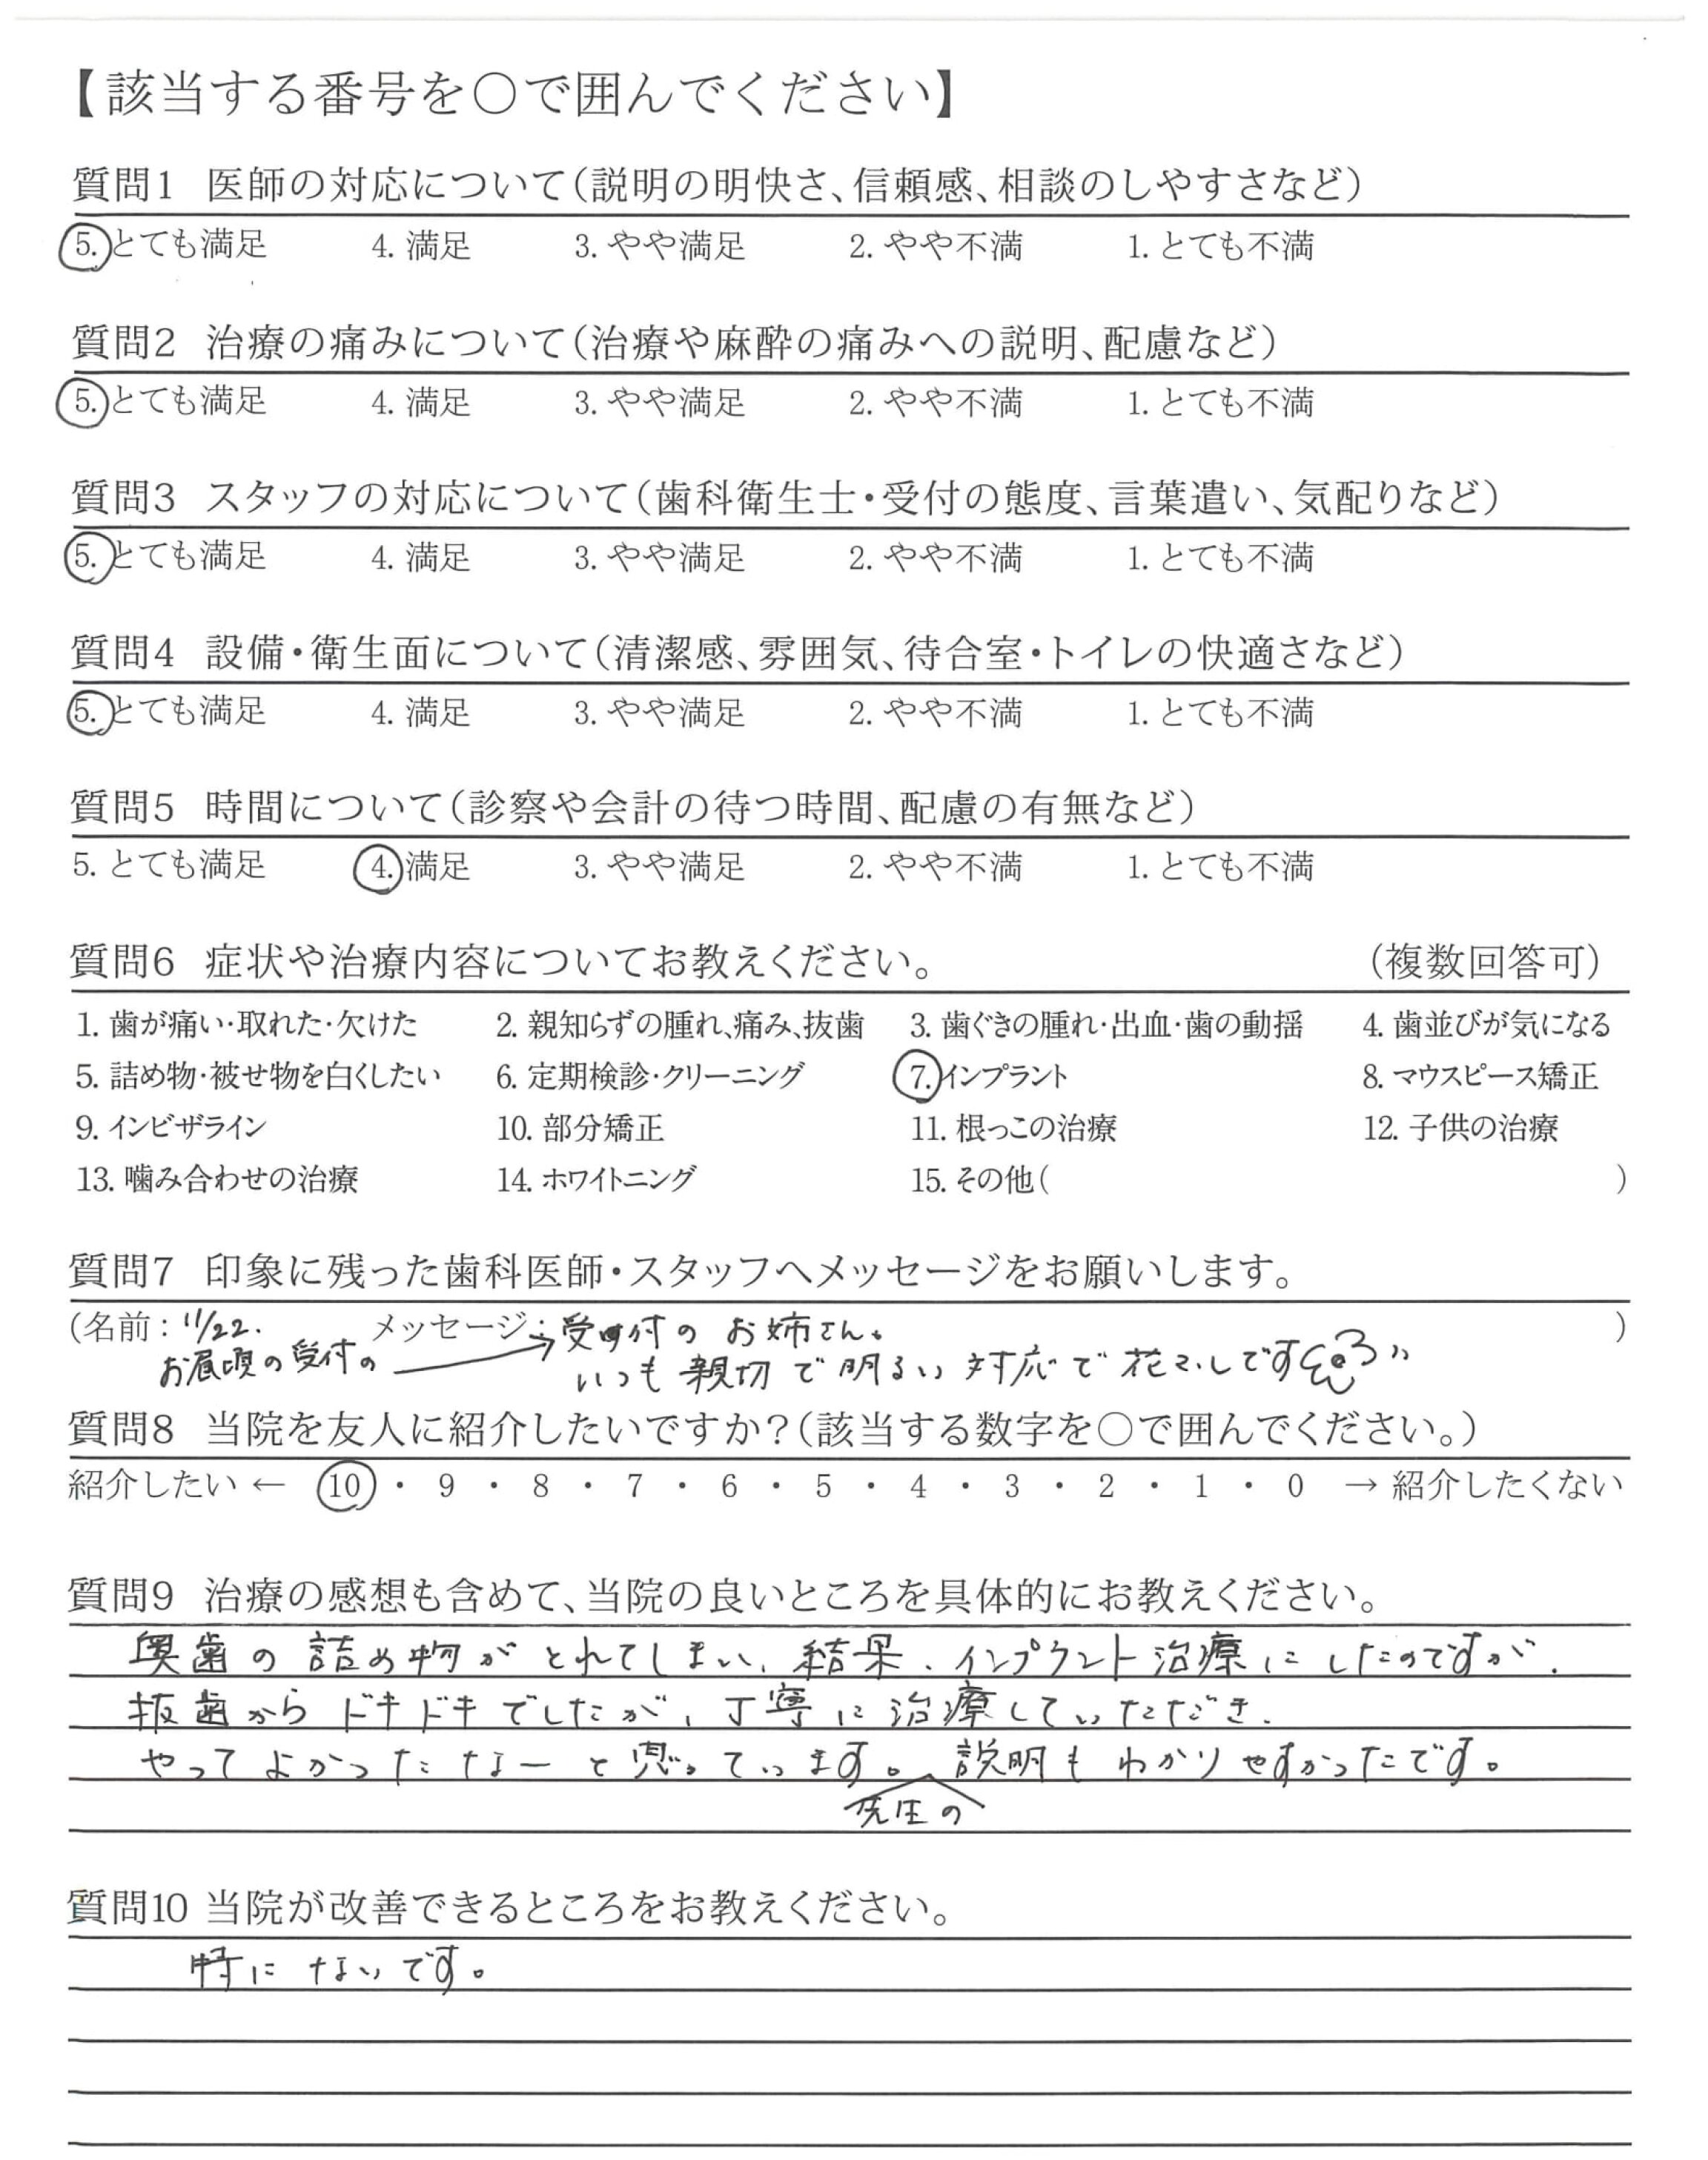 【該当する番号を○で囲んでください】
質問1 医師の対応について(説明の明快さ、信頼感、相談のしやすさなど)
5. とても満足 4. 満足 3. やや満足 2. やや不満 1. とても不満
質問2 治療の痛みについて(治療や麻酔の痛みへの説明、配慮など)
5. とても満足 4. 満足 3. やや満足 2. やや不満 1. とても不満
質問3 スタッフの対応について(歯科衛生士・受付の態度、言葉遣い、気配りなど)
5. とても満足 4. 満足 3. やや満足 2. やや不満 1. とても不満
質問4 設備・衛生面について(清潔感、雰囲気、待合室・トイレの快適さなど)
5. とても満足 4. 満足 3. やや満足 2. やや不満 1. とても不満
質問5 時間について(診察や会計の待つ時間、配慮の有無など)
5. とても満足 4. 満足 3. やや満足 2. やや不満 1. とても不満
質問6 症状や治療内容についてお教えください。 (複数回答可)
1. 歯が痛い・取れた・欠けた 2. 親知らずの腫れ、痛み、抜歯 3. 歯ぐきの腫れ・出血・歯の動揺 4. 歯並びが気になる
5. 詰め物・被せ物を白くしたい 6. 定期検診・クリーニング 7. インプラント 8. マウスピース矯正
9. インビザライン 10. 部分矯正 11. 根っこの治療 12. 子供の治療
13. 噛み合わせの治療 14. ホワイトニング 15. その他( )
質問7 印象に残った歯科医師・スタッフへメッセージをお願いします。
(名前: 11/22. メッセージ: 受付のお姉さん。 )
お昼頃の受付の → いつも親切で明るい対応で花マルです
質問8 当院を友人に紹介したいですか?(該当する数字を○で囲んでください。)
紹介したい ← 10 ・ 9 ・ 8 ・ 7 ・ 6 ・ 5 ・ 4 ・ 3 ・ 2 ・ 1 ・ 0 → 紹介したくない
質問9 治療の感想も含めて、当院の良いところを具体的にお教えください。
奥歯の詰め物がとれてしまい、結果、インプラント治療にしたのですが、
抜歯からドキドキでしたが、丁寧に治療していただき、
やってよかったなーと思っています。説明もわかりやすかったです。
先生の
質問10 当院が改善できるところをお教えください。
特にないです。